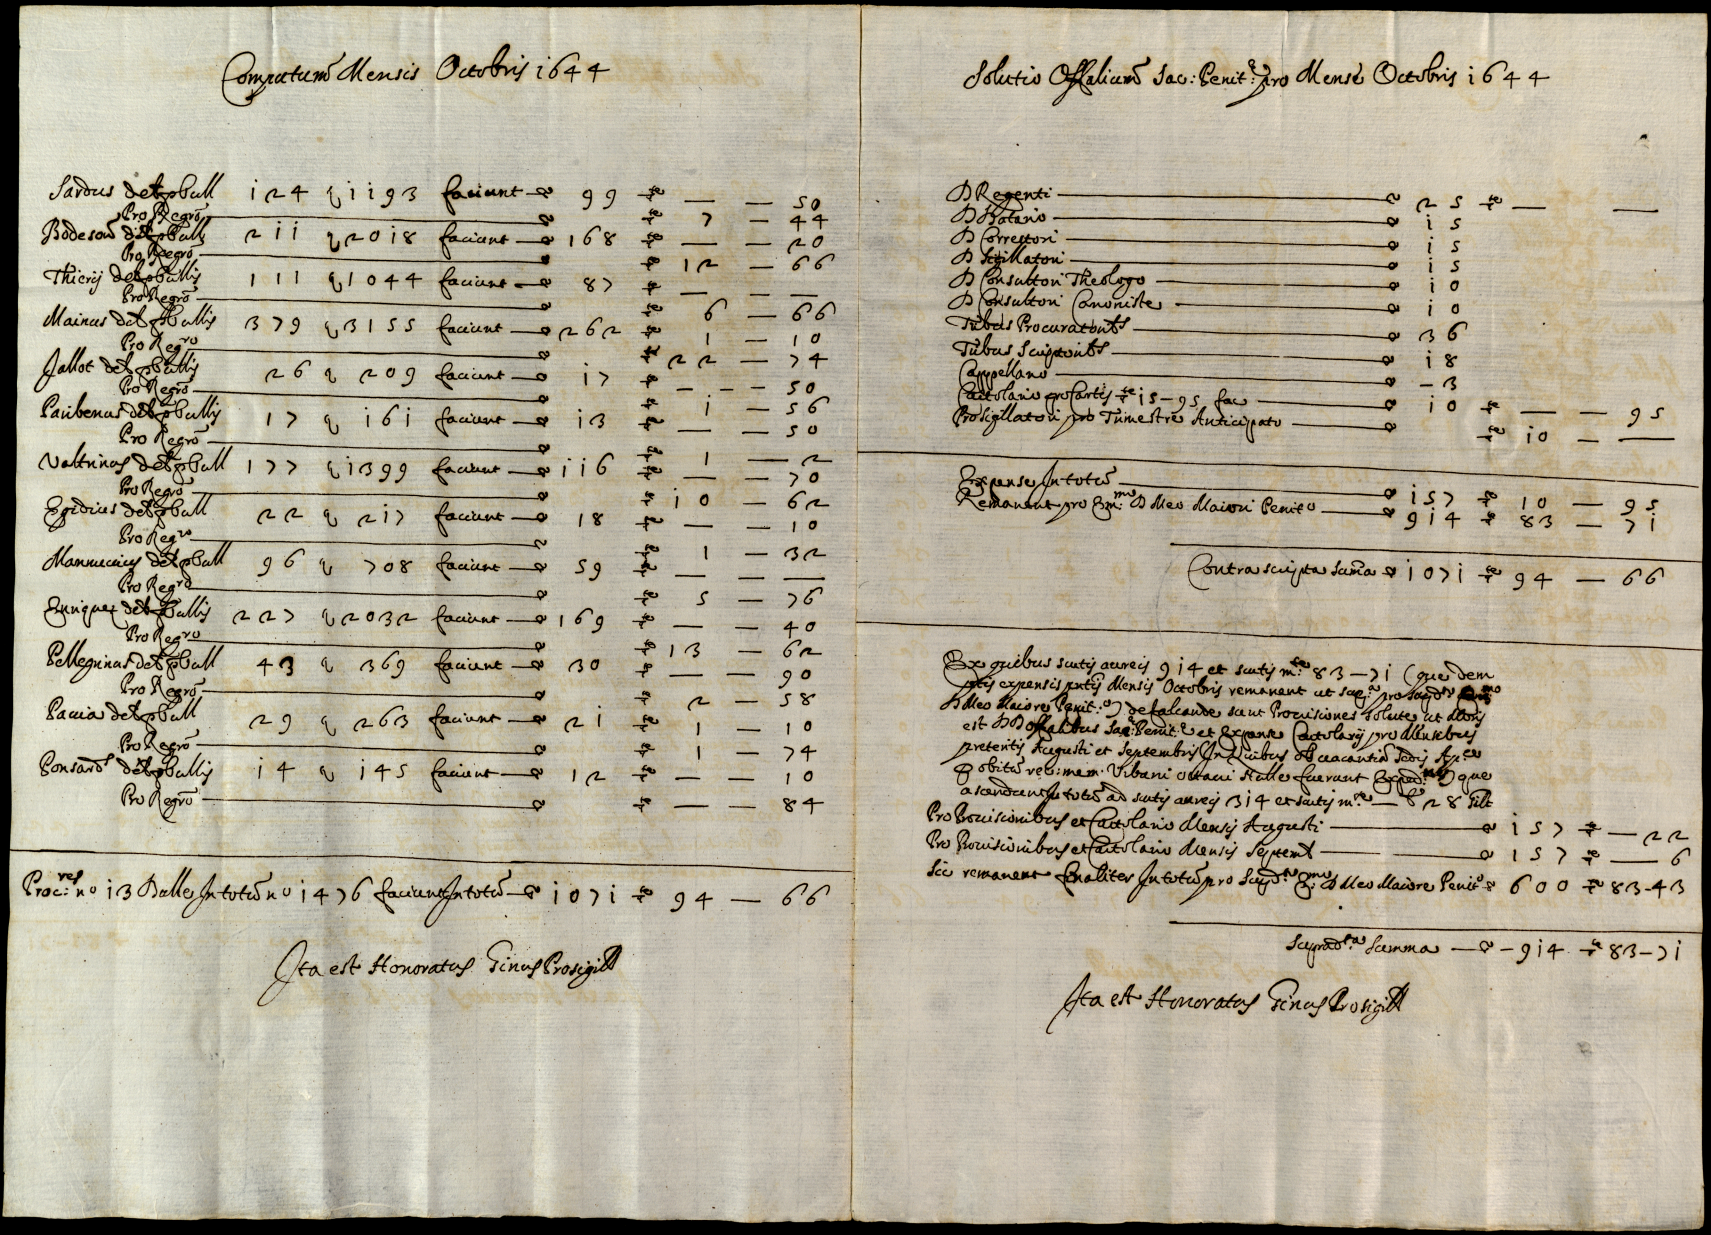 Computum Mensis Octobris 1644
Sardus det pbull 124 q 1193 faciunt 99 — — 50
Pro Regro 7 — 44
Bodeson det pbull 211 q 2018 faciunt 168 — — 20
Pro Regro 12 — 66
Thierij det pbullis 111 q 1044 faciunt 87 — —
Pro Regro 6 — 66
Mainus det pbullis 379 q 3155 faciunt 262 1 — 10
Pro Regro 22 — 74
Jallot det pbullis 26 q 209 faciunt 17 — — 50
Pro Regro 1 — 56
Paribenus det pbullis 17 q 161 faciunt 13 — — 50
Pro Regro 1 — 2
Valtrinus det pbull 177 q 1399 faciunt 116 — — 70
Pro Regro 10 — 62
Egidius det pbull 22 q 217 faciunt 18 — — 10
Pro Regro 1 — 32
Mannucius det pbull 96 q 708 faciunt 59 — — —
Pro Regro 5 — 76
Enriquez det pbullis 227 q 2032 faciunt 169 — — 40
Pro Regro 13 — 62
Pellegrinus det pbull 43 q 369 faciunt 30 — — 90
Pro Regro 2 — 58
Pacia det pbull 29 q 263 faciunt 21 1 — 10
Pro Regro 1 — 74
Ponsard det pbullis 14 q 145 faciunt 12 — — 10
Pro Regro — — 84
Proc:res no 13 Bulle In totum no 1476 faciunt In totum 1071 94 — 66
Ita est Honoratus Ginus Prosigill
Solutio Offalium Sac: Penit: pro Mense Octobris 1644
D Regenti 25 — —
D Datario 15
D Correctori 15
D Sigillatori 15
D Consultori Theologo 10
D Consultori Canoniste 10
Tribus Procuratoribs 36
Tribus Scriptoribs 18
Cappellano – 3
Cartolario pro Cartis 15–95 fac 10 — — 95
Prosigillatori pro Trimestre Anticipato 10 — —
Expense In totum 157 10 — 95
Remanent pro Em:mo D Meo Maiori Penit:o 914 83 — 71
Contrascripta Suma 1071 94 — 66
Ex quibus scutis aureis 914 et scutis m:te 83–71 (que dem
ptis expensis pntis Mensis Octobris remanent ut sup:a pro supdto
D Meo Maiore Penit:o) defalcande sunt Provisiones solute ut Moris
est DD Offalibus Sac: Penit:e et Expense Cartolarij pro Mensibus
preteritis Augusti et Septembris (In Quibus ob vacantia Sedis Ap:ce
p obitum rec: mem: Urbani octavi Nulle fuerunt Exped:) que
ascendunt In totum ad scutis aureis 314 et scutis m:te — b 28 silt
Pro Provisionibus et Cartolario Mensis Augusti 157 — 22
Pro Provisionibus et Cartolario Mensis Septemb 157 — 6
Sic remanent finaliter In totum pro Supd:to E:mo D Meo Maiore Penit:o 600 83–43
Suprad:ta Summa — – 914 83–71
Ita est Honoratus Ginus Prosigill